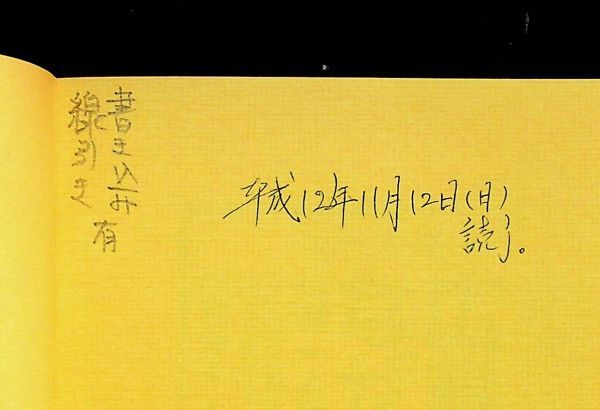 書き込み
線引き
有
平成12年11月12日(日)
読了。